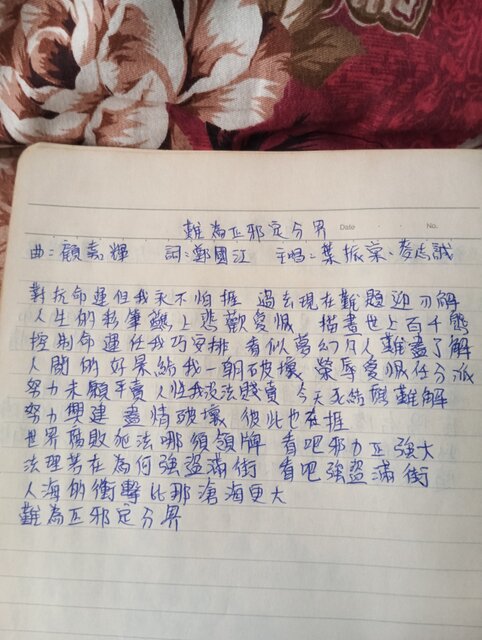 難為正邪定分界
Date
No.
曲:顧嘉輝 詞:鄭國江 主唱:葉振棠、麥志誠
對抗命運但我永不怕捱 過去現在難題迎刃解
人生的彩筆蘸上悲歡愛恨 描畫世上百千態
控制命運任我巧安排 看似夢幻凡人難盡了解
人間的好果結我一朝破壞 榮辱愛恨任分派
努力未願平賣 人性我沒法賤賣 今天死結難解
努力興建 盡情破壞 彼此也在捱
世界腐敗犯法哪須領牌 看吧邪力正強大
法理若在為何強盜滿街 看吧強盜滿街
人海的衝擊比那滄海更大
難為正邪定分界